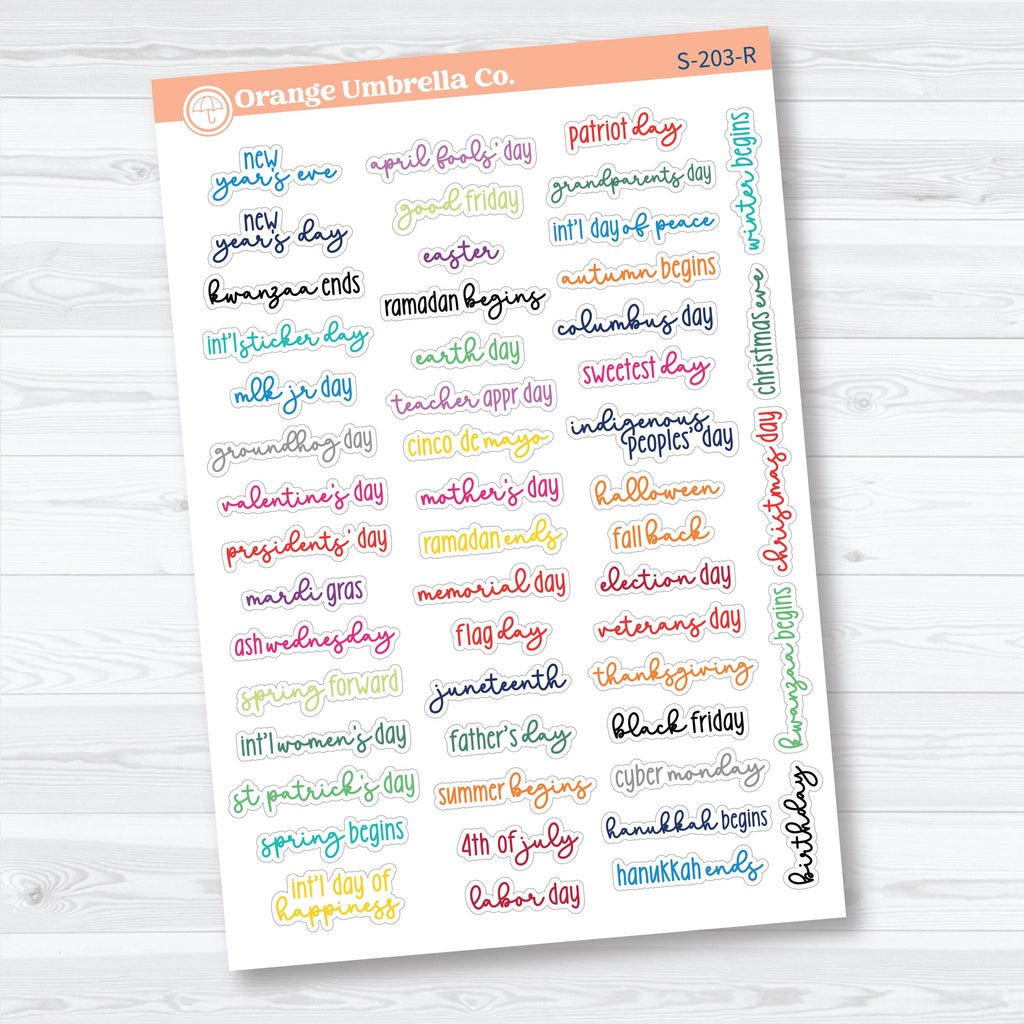 Orange Umbrella Co.
S-203-R
new
year's eve
new
year's day
kwanzaa ends
int'l sticker day
mlk jr day
groundhog day
valentine's day
presidents' day
mardi gras
ash wednesday
spring forward
int'l women's day
st patrick's day
spring begins
int'l day of
happiness
april fools' day
good friday
easter
ramadan begins
earth day
teacher appr day
cinco de mayo
mother's day
ramadan ends
memorial day
flag day
juneteenth
father's day
summer begins
4th of july
labor day
patriot day
grandparents day
int'l day of peace
autumn begins
columbus day
sweetest day
indigenous
peoples' day
halloween
fall back
election day
veterans day
thanksgiving
black friday
cyber monday
hanukkah begins
hanukkah ends
winter begins
christmas eve
christmas day
kwanzaa begins
birthday